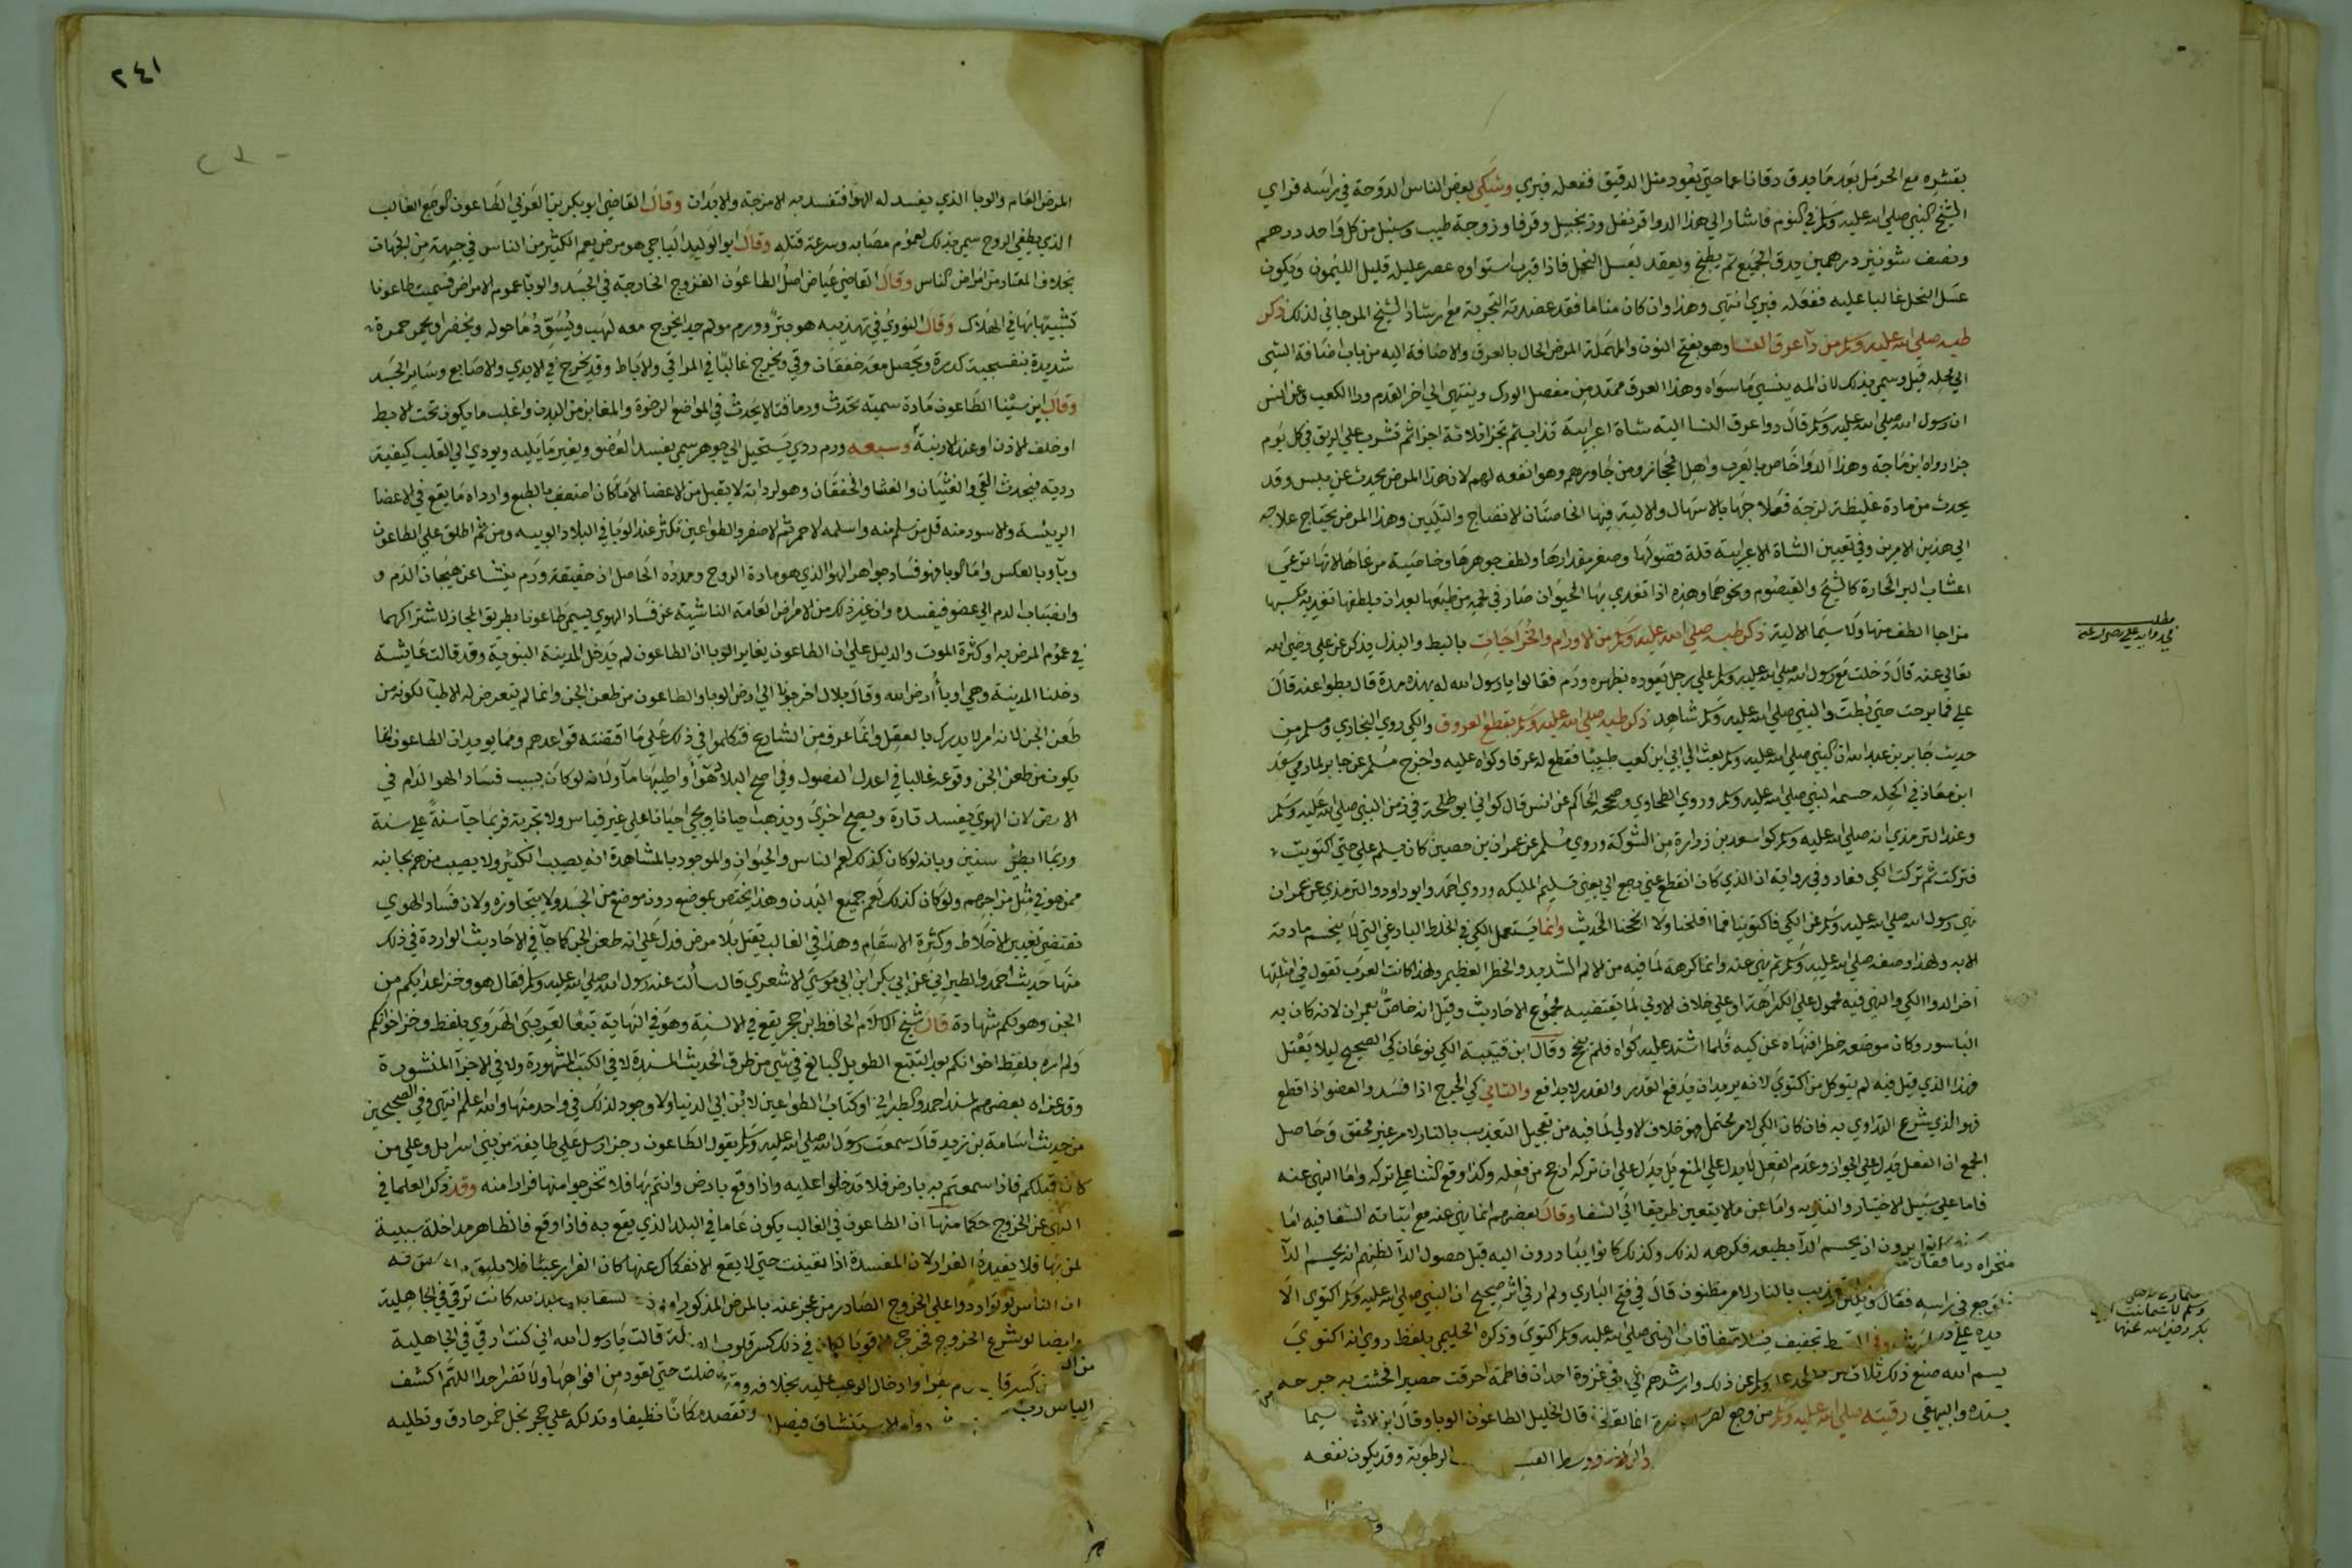 بقشره مع الحرمل بعد ما يدق دقا ناعما حتى يعود مثل الدقيق ففعله فبري وشكي بعض الناس الدوخة في راسه فراي
الشيخ النبي صلى الله عليه وسلم في النوم فاشار الي هذا الدوا قرنفل وزنجبيل وقرفا وزوجة طيب وسنبل من كل واحد درهم
ونصف شونيز درهمين يدق الجميع ثم يطبخ ويعقد بعسل النحل فاذا قرب استواوه عصر عليه قليل الليمون ويكون
عسل النحل غالبا عليه ففعله فبري انتهي وهذا وان كان مناما فقد عضدته التجربة مع ارشاد الشيخ المرجاني لذلك ذكر
طبه صلى الله عليه وسلم من دآ عرق النسا وهو بفتح النون والمهملة المرض الحال بالعرق والاضافة اليه من باب اضافة الشي
الي محله قيل وسمي بذلك لان المه ينسي ما سواه وهذا العرق ممتد من مفصل الورك وينتهي الي اخر القدم ورا الكعب وعن انس
ان رسول الله صلى الله عليه وسلم قال دوا عرق النسا الية شاة اعرابية تذاب ثم تجزا ثلاثة اجزا ثم تشرب علي الريق في كل يوم
جزا رواه ابن ماجة وهذا الدوا خاص بالعرب واهل الحجاز ومن جاورهم وهو انفعه لهم لان هذا المرض يحدث عن يبس وقد
يحدث من مادة غليظة لزجة فعلاجها بالاسهال والالية فيها الخاصتان الانضاج والتليين وهذا المرض يحتاج علاجه
الي هذين الامرين وفي تعيين الشاة الاعرابية قلة فضولها وصغر مقدارها ولطف جوهرها وخاصية مرعاها لانها ترعي
اعشاب البر الحارة كالشيح والقيصوم ونحوهما وهذه اذا تغدي بها الحيوان صار في لحمه من طبعها بعد ان يلطفها تغذيه بها
مزاجا الطف منها ولا سيما الالية ذكر طبه صلى الله عليه وسلم من الاورام والخراجات بالبط والبذل يذكر عن علي رضي الله
تعالي عنه قال دخلت مع رسول الله صلى الله عليه وسلم علي رجل يعوده بظهره ورم فقالوا يا رسول الله له بهذه مدة قال بطوا عنه قال
علي فما برحت حتي بطت والنبي صلى الله عليه وسلم شاهد ذكر طبه صلى الله عليه وسلم بقطع العروق والكي روي البخاري ومسلم من
حديث جابر بن عبد الله ان النبي صلى الله عليه وسلم بعث الي ابي ابن كعب طبيبا فقطع له عرقا وكواه عليه واخرج مسلم عن جابر لما رمي سعد
ابن معاذ في اكحله حسمه النبي صلى الله عليه وسلم وروي الطحاوي وصححه الحاكم عن انس قال كواني ابو طلحة في زمن النبي صلى الله عليه وسلم
وعند الترمذي انه صلى الله عليه وسلم كوا سعد بن زرارة من الشوكة وروي مسلم عن عمران بن حصين كان يسلم علي حتي اكتويت
فتركت ثم تركت الكي فعاد وفي رواية ان الذي كان انقطع عني رجع الي يعني تسليم الملئكه وروي احمد وابو داود والترمذي عن عمران
نهي رسول الله صلى الله عليه وسلم عن الكي فاكتوينا فما افلحنا ولا انجحنا الحديث وانما يستعمل الكي في الخلط الباردي التي لا ينحسم مادته
الا به ولهذا وصفه صلى الله عليه وسلم ثم نهي عنه وانما كرهه لما فيه من الالم الشديد والخطر العظيم ولهذا كانت العرب تقول في امثلتها
اخر الدوا الكي والنهي فيه محمول علي الكراهة او علي خلاف الاولي لما يقتضيه مجموع الاحاديث وقيل انه خاص بعمران لانه كان به
الباسور وكان موضعه خطرا فنهاه عن كيه فلما اشتد عليه كواه فلم ينجح وقال ابن قتيبة الكي نوعان كي الصحيح ليلا يعتل
فهذا الذي قيل فيه لم يتوكل من اكتوي لانه يريد ان يدفع القدر والقدر لا يدافع والثاني كي الجرح اذا فسد والعضو اذا قطع
فهو الذي شرع التداوي به فان كان الكي لامر محتمل فهو خلاف الاولي لما فيه من تعجيل التعذيب بالنار لامر غير محقق وحاصل
الجمع ان الفعل يدل علي الجواز وعدم الفعل لا يدل علي المنع بل يدل علي ان تركه ارجح من فعله وكذا وقع الثنا علي تركه واما النهي عنه
فاما علي سبيل الاختيار والتنزيه واما عن ما لا يتعين طريقا الي الشفا وقال بعضهم انما نهي عنه مع اثباته الشفا فيه اما
يرون ان يحسم الدآ بطبعه فكرهه لذلك وكذلك كانوا يبادرون اليه قبل حصول الدآ لظنهم انه يحسم الدآ
بالنار لامر مظنون قال في فتح الباري ولم ار في اثر صحيح ان النبي صلى الله عليه وسلم اكتوي الا
النبي صلى الله عليه وسلم اكتوي وذكره الحليمي بلفظ روي انه اكتوي
بسم الله صنع ذلك ثلاث في غزوة احد ان فاطمة احرقت حصيرا فحشت به جرحه
والبيهقي رقيته صلى الله عليه وسلم من وجع قال الخليل الطاعون الوبا وقال ابن الاثير
الرطوبة وقد يكون نفعه
في دوايه علي رضي الله عنه
٢٤١
المرض العام والوبا الذي يفسد له الهوا فتفسد به الامزجة والابدان وقال القاضي ابو بكر بن العربي الطاعون الوجع الغالب
الذي يطفي الروح سمي بذلك لعموم مصابه وسرعة قتله وقال ابو الوليد الباجي هو مرض يعم الكثير من الناس في جهة من الجهات
بخلاف المعتاد من امراض الناس وقال القاضي عياض اصل الطاعون القروح الخارجة في الجسد والوبا عموم الامراض فسميت طاعونا
تشبيها بها في الهلاك وقال النووي في تهذيبه هو بثر وورم مولم جدا يخرج معه لهب ويسود ما حوله ويخضر او يحمر حمرة
شديدة بنفسجية كدرة ويحصل معه خفقان وقي ويخرج غالبا في المراقي والاباط وقد يخرج في الايدي والاصابع وساير الجسد
وقال ابن سينا الطاعون مادة سمية تحدث ورما قتالا يحدث في المواضع الرخوة والمغابن من البدن واغلب ما يكون تحت الابط
او خلف الاذن او عند الارنبة وسببه ورم ردي يستحيل الي جوهر سمي يفسد العضو ويغير ما يليه ويودي الي القلب كيفية
ردية فيحدث القي والغثيان والغشا والخفقان وهو لرداته لا يقبل من الاعضا الا ما كان اضعف بالطبع وارداه ما يقع في الاعضا
الرئيسة والاسود منه قل من سلم منه واسلمه الاحمر ثم الاصفر والطواعين تكثر عند الوبا في البلاد الوبيه ومن ثم اطلق علي الطاعون
وبآ وبالعكس واما الوبا فهو فساد جواهر الهوا الذي هو مادة الروح ومدده الحاصل ان حقيقته ورم ينشا عن هيجان الدم و
وانصباب الدم الي عضو فيفسده وان غير ذلك من الامراض العامة الناشية عن فساد الهوي يسمي طاعونا بطريق المجاز لاشتراكهما
في عموم المرض به او كثرة الموت والدليل علي ان الطاعون يغاير الوبا ان الطاعون لم يدخل المدينة النبوية وقد قالت عايشة
دخلنا المدينة وهي اوبا ارض الله وقال بلال اخرجونا الي ارض الوبا والطاعون من طعن الجن وانما لم يتعرض له الاطبآ لكونه من
طعن الجن لانه امر لا يدرك بالعقل وانما عرف من الشارع فتكلموا في ذلك علي ما اقتضته قواعدهم ومما يويد ان الطاعون انما
يكون من طعن الجن وقوعه غالبا في اعدل الفصول وفي اصح البلاد هوآ واطيبها مآ ولانه لو كان بسبب فساد الهوا لدام في
الارض لان الهوي يفسد تارة ويصح اخري ويذهب احيانا ويجي احيانا علي غير قياس ولا تجربة فربما جآ سنة علي سنة
وربما ابطي سنين وبانه لو كان كذلك لعم الناس والحيوان والموجود بالمشاهدة انه يصيب الكثير ولا يصيب من هم بجانبه
ممن هو في مثل مزاجهم ولو كان كذلك لعم جميع البدن وهذا يختص بموضع دون موضع من الجسد ولا يتجاوزه ولان فساد الهوي
تقتضي تغيير الاخلاط وكثرة الاسقام وهذا في الغالب يقتل بلا مرض فدل علي انه طعن الجن كما جآ في الاحاديث الواردة في ذلك
منها حديث احمد والطبراني عن ابي بكر ابن ابي موسي الاشعري قال سألت عنه رسول الله صلى الله عليه وسلم فقال هو وخز اعدايكم من
الجن وهو لكم شهادة قال شيخ الاسلام الحافظ ابن حجر يقع في الالسنة وهو في النهاية تبعا لغريبي الهروي بلفظ وخز اخوانكم
ولم اره بلفظ اخوانكم بعد التتبع الطويل البالغ في شي من طرق الحديث المسندة لا في الكتب المشهورة ولا في الاجزآ المنثورة
وقد عزاه بعضهم لمسند احمد والطبراني او كتاب الطواعين لابن ابي الدنيا ولا وجود لذلك في واحد منها والله اعلم انتهي وفي الصحيحين
من حديث اسامة بن زيد قال سمعت رسول الله صلى الله عليه وسلم يقول الطاعون رجز ارسل علي طايفة من بني اسرايل وعلي من
كان قبلكم فاذا سمعتم به بارض فلا تدخلوا عليه واذا وقع بارض وانتم بها فلا تخرجوا منها فرارا منه وقد ذكر العلما في
النهي عن الخروج حكما منها ان الطاعون في الغالب يكون عاما في البلد الذي يقع به فاذا وقع فالظاهر مداخلة سببية
لمن بها فلا يفيده الفرار لان المفسدة اذا تعينت حتي لا يقع الانفكاك عنها كان الفرار عبثا فلا يليق
ان الناس لو تواردوا علي الخروج لصار من عجز عنه بالمرض المذكور كانت ترقي في الجاهلية
وايضا لو شرع الخروج فخرج الاقويا لكان في ذلك كسر قلوب قالت يا رسول الله اني كنت ارقي في الجاهلية
وادخال الرعب عليه بخلافه ضلت حتي يعود من افواهها ولا تضر احدا اللهم اكشف
الباس رب الاستنشاق وتقصده مكانا نظيفا وتدلكه علي حجر بخل خمر حاذق وتطليه